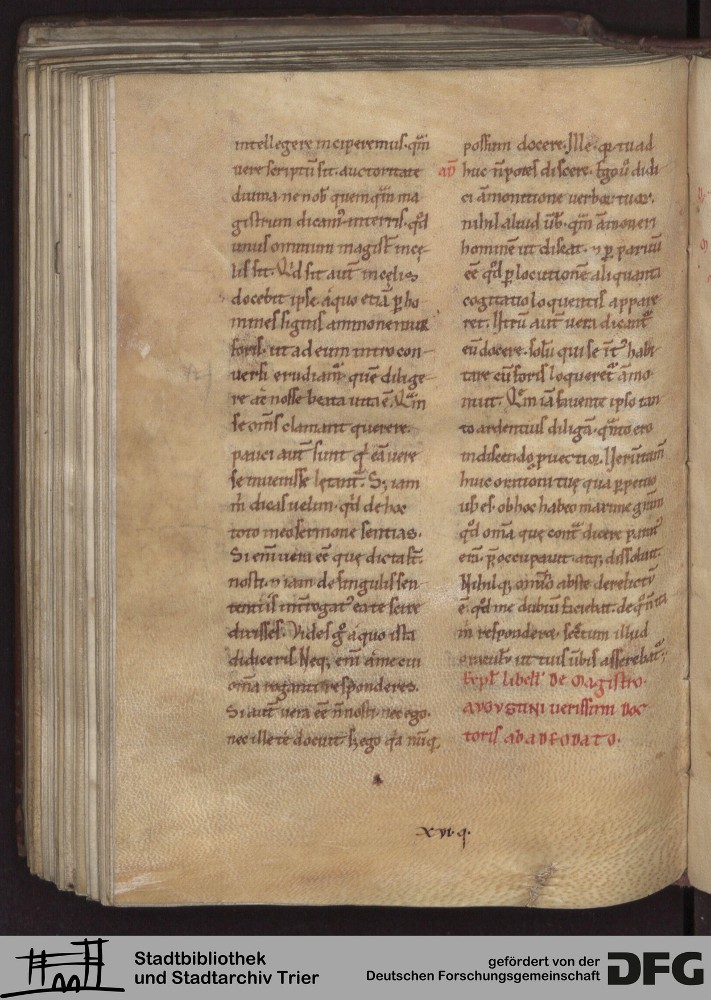 intellegere inciperemus. qm̄
vere scriptū sit. auctoritate
divina. ne nob̄ quemqm̄ ma
gistrum dicam᷒ in terris. qd̄
unus omnium magist̄ in cę
lis sit. Qd̄ sit aut̄ in celis
docebit ipse. a quo etiā p ho
mines signis ammonemur
foris. ut ad eum intro con
versi erudiam᷒. quē dilige
re ac nosse beata vita ē. Quā
se om̄s clamant querere.
pauci aut̄ sunt qi eā vere
se invenisse lętant᷒. S; iam
m̄ dicas velim. qd̄ de hoc
toto meo sermone sentias.
Si eni vera eē que dicta st̄
nosti. &amp; iam de singulis sen
tentiis int̄rogat᷒ ea te scire
dixisses. Vides gͦ a quo ista
didiceris. Neq; eni a me cui
om̄a roganti responderes.
Si aut̄ vera eē n̄ nosti. nec ego.
nec ille te docuit. S; ego qa nūq̄
possum docere. Ille. qa tu ad
AD huc n̄ potes discere. Ego v̊ didi
ci āmonitione verborꝝ tuorꝝ.
nihil aliud v̄b. qm̄ āmoneri
hominē ut discat. &amp; pparū
eē qd̄ p locutionē aliquanta
cogitatio loquentis appare
ret. Utrū aut̄ vera dicant᷒
eū docere. solū qui se int᷒ habi
tare cū foris loqueret᷒ āmo
nuit. Quē iā favente ipso tan
to ardentius diligā. qnto ero
in discendo pvectior. Verūtam̄
huic orationi tuę qua ppetuo
us̄ es. ob hoc habeo maxime grām
qd̄ om̄a que cont᷒ dicere parat᷒
erā. poccupavit atq; dissolvit.
Nihilq; om̄io abs te derelictū
ē. qd̄ me dubiū faciebat. de q n̄ ita
m̄ responderet sec̄tum illud
oraculū. ut tuis v̄bis asserebat᷒.
Expl̄ libell᷒ DE Magistro.
AUGUSTINI verissimi DOC
toris ab ADEODATO.
XVI. q.
Stadtbibliothek
und Stadtarchiv Trier
gefördert von der
Deutschen Forschungsgemeinschaft
DFG